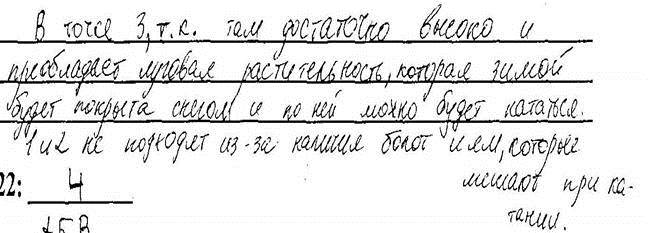 В точке 3, т.к. там достаточно высоко и
преобладает луговая растительность, которая зимой
будет покрыта снегом и по ней можно будет кататься.
1 и 2 не подходят из-за наличия болот и ям, которые
мешают при ка-
тании.
22: 4